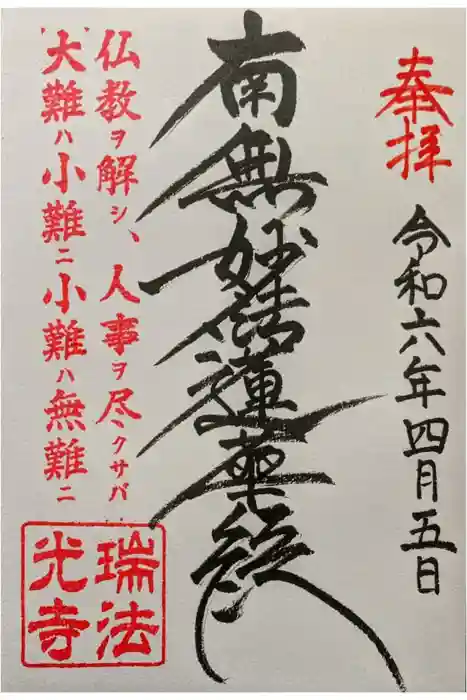 奉拝
令和六年四月五日
南無妙法蓮華経
仏教ヲ解シ、人事ヲ尽クサバ
大難ハ小難ニ小難ハ無難ニ
瑞法
光寺